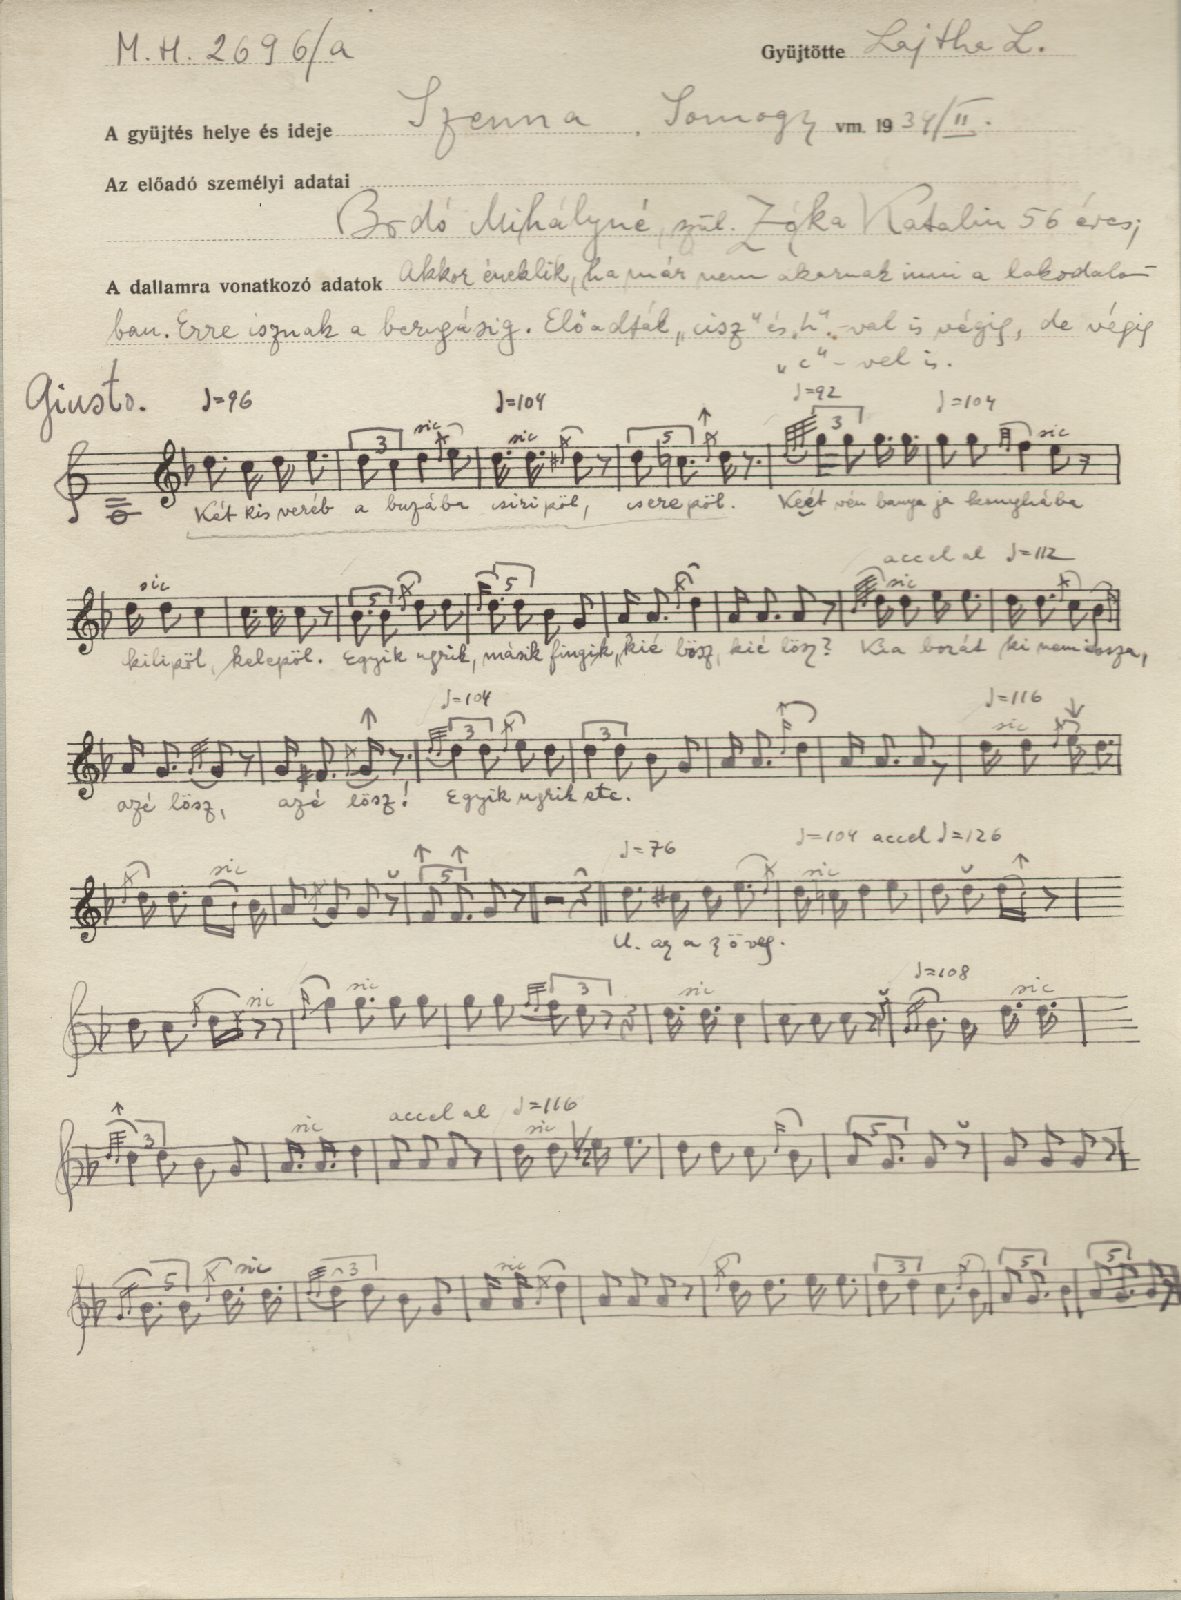 M.H. 2696/a Gyüjtötte Lajtha L.
A gyüjtés helye és ideje Szenna, Somogy vm. 1934/II.
Az előadó személyi adatai
Bodó Mihályné, szül. Zóka Katalin 56 éves;
A dallamra vonatkozó adatok Akkor éneklik, ha már nem akarnak inni a lakodalom-
ban. Erre isznak a berugásig. Előadták „cisz" és „h"-val is végig, de végig
„c"-vel is.
Giusto. ♩=96 ♩=104 ♩=92 ♩=104
3 sic sic 5 3 sic
Két kis veréb a buzába csiripöl, cserepöl. Keét vén banya ja konyhába
accel al ♩=112
sic 5 5 sic
kilipöl, kelepöl. Egyik ugrik, másik fingik, kié lösz, kié lösz? Ki a borát ki nem issza,
♩=104 ♩=116
3 3 sic
azé lösz, azé lösz! Egyik ugrik etc.
♩=76 ♩=104 accel ♩=126
sic 5 sic
U. az a szöveg.
♩=108
sic sic 3 sic sic
accel al ♩=116
3 sic sic 5
5 sic 3 sic 3 5 5